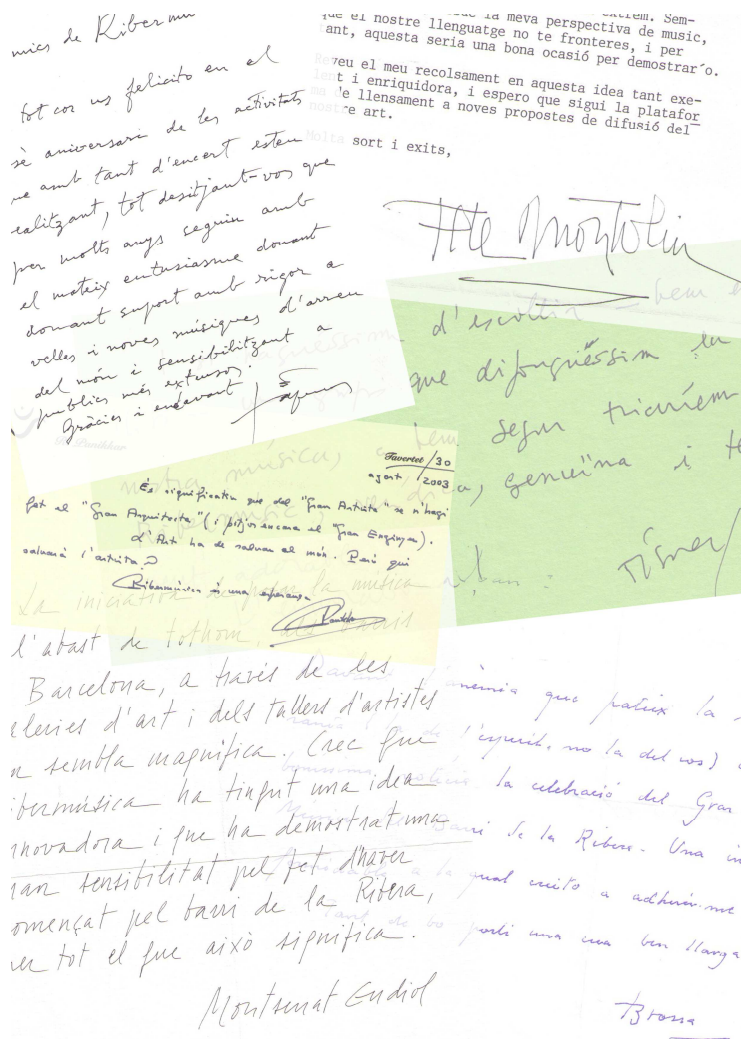 mics de Ribermú
tot cor us felicito en el
sè aniversari de les activitats
ue amb tant d'encert esteu
ealitzant, tot desitjant-vos que
per molts anys seguiu amb
el mateix entusiasme donant
donant suport amb rigor a
velles i noves músiques d'arreu
del món i sensibilitzant a
públics més extensos.
Gràcies i endavant
la meva perspectiva de music,
que el nostre llenguatge no te fronteres, i per
ant, aquesta seria una bona ocasió per demostrar'o.
Reveu el meu recolsament en aquesta idea tant exe-
lent i enriquidora, i espero que sigui la platafor
ma de llensament a noves propostes de difusió del
nostre art.
Molta sort i exits,
Tete Montoliu
d'escoltar
que difonguéssim la
segur triaríem
nostra música,
genuïna i
Tísner
R. Panikkar
Tavertet/30
agost/2003
És significatiu que del "Gran Artista" se n'hagi
fet el "Gran Arquitecte" (i pitjor encara el "Gran Enginyer).
L'Art ha de salvar el món. Però qui
salvarà l'artista?
Ribermúsica és una esperança
La iniciativa de portar la música
l'abast de tothom, als barris
Barcelona, a través de les
aleries d'art i dels tallers d'artistes
m sembla magnífica. Crec que
ibermúsica ha tingut una idea
nnovadora i que ha demostrat una
ran sensibilitat pel fet d'haver
omençat pel barri de la Ribera,
er tot el que això significa.
Montserrat Gudiol
anèmia que pateix la
de l'esperit, no la del cos)
notícia la celebració del Gran
barri de la Ribera. Una in
a la qual cuito a adherir-me
Tant de bo porti una cua ben llarga
Brossa